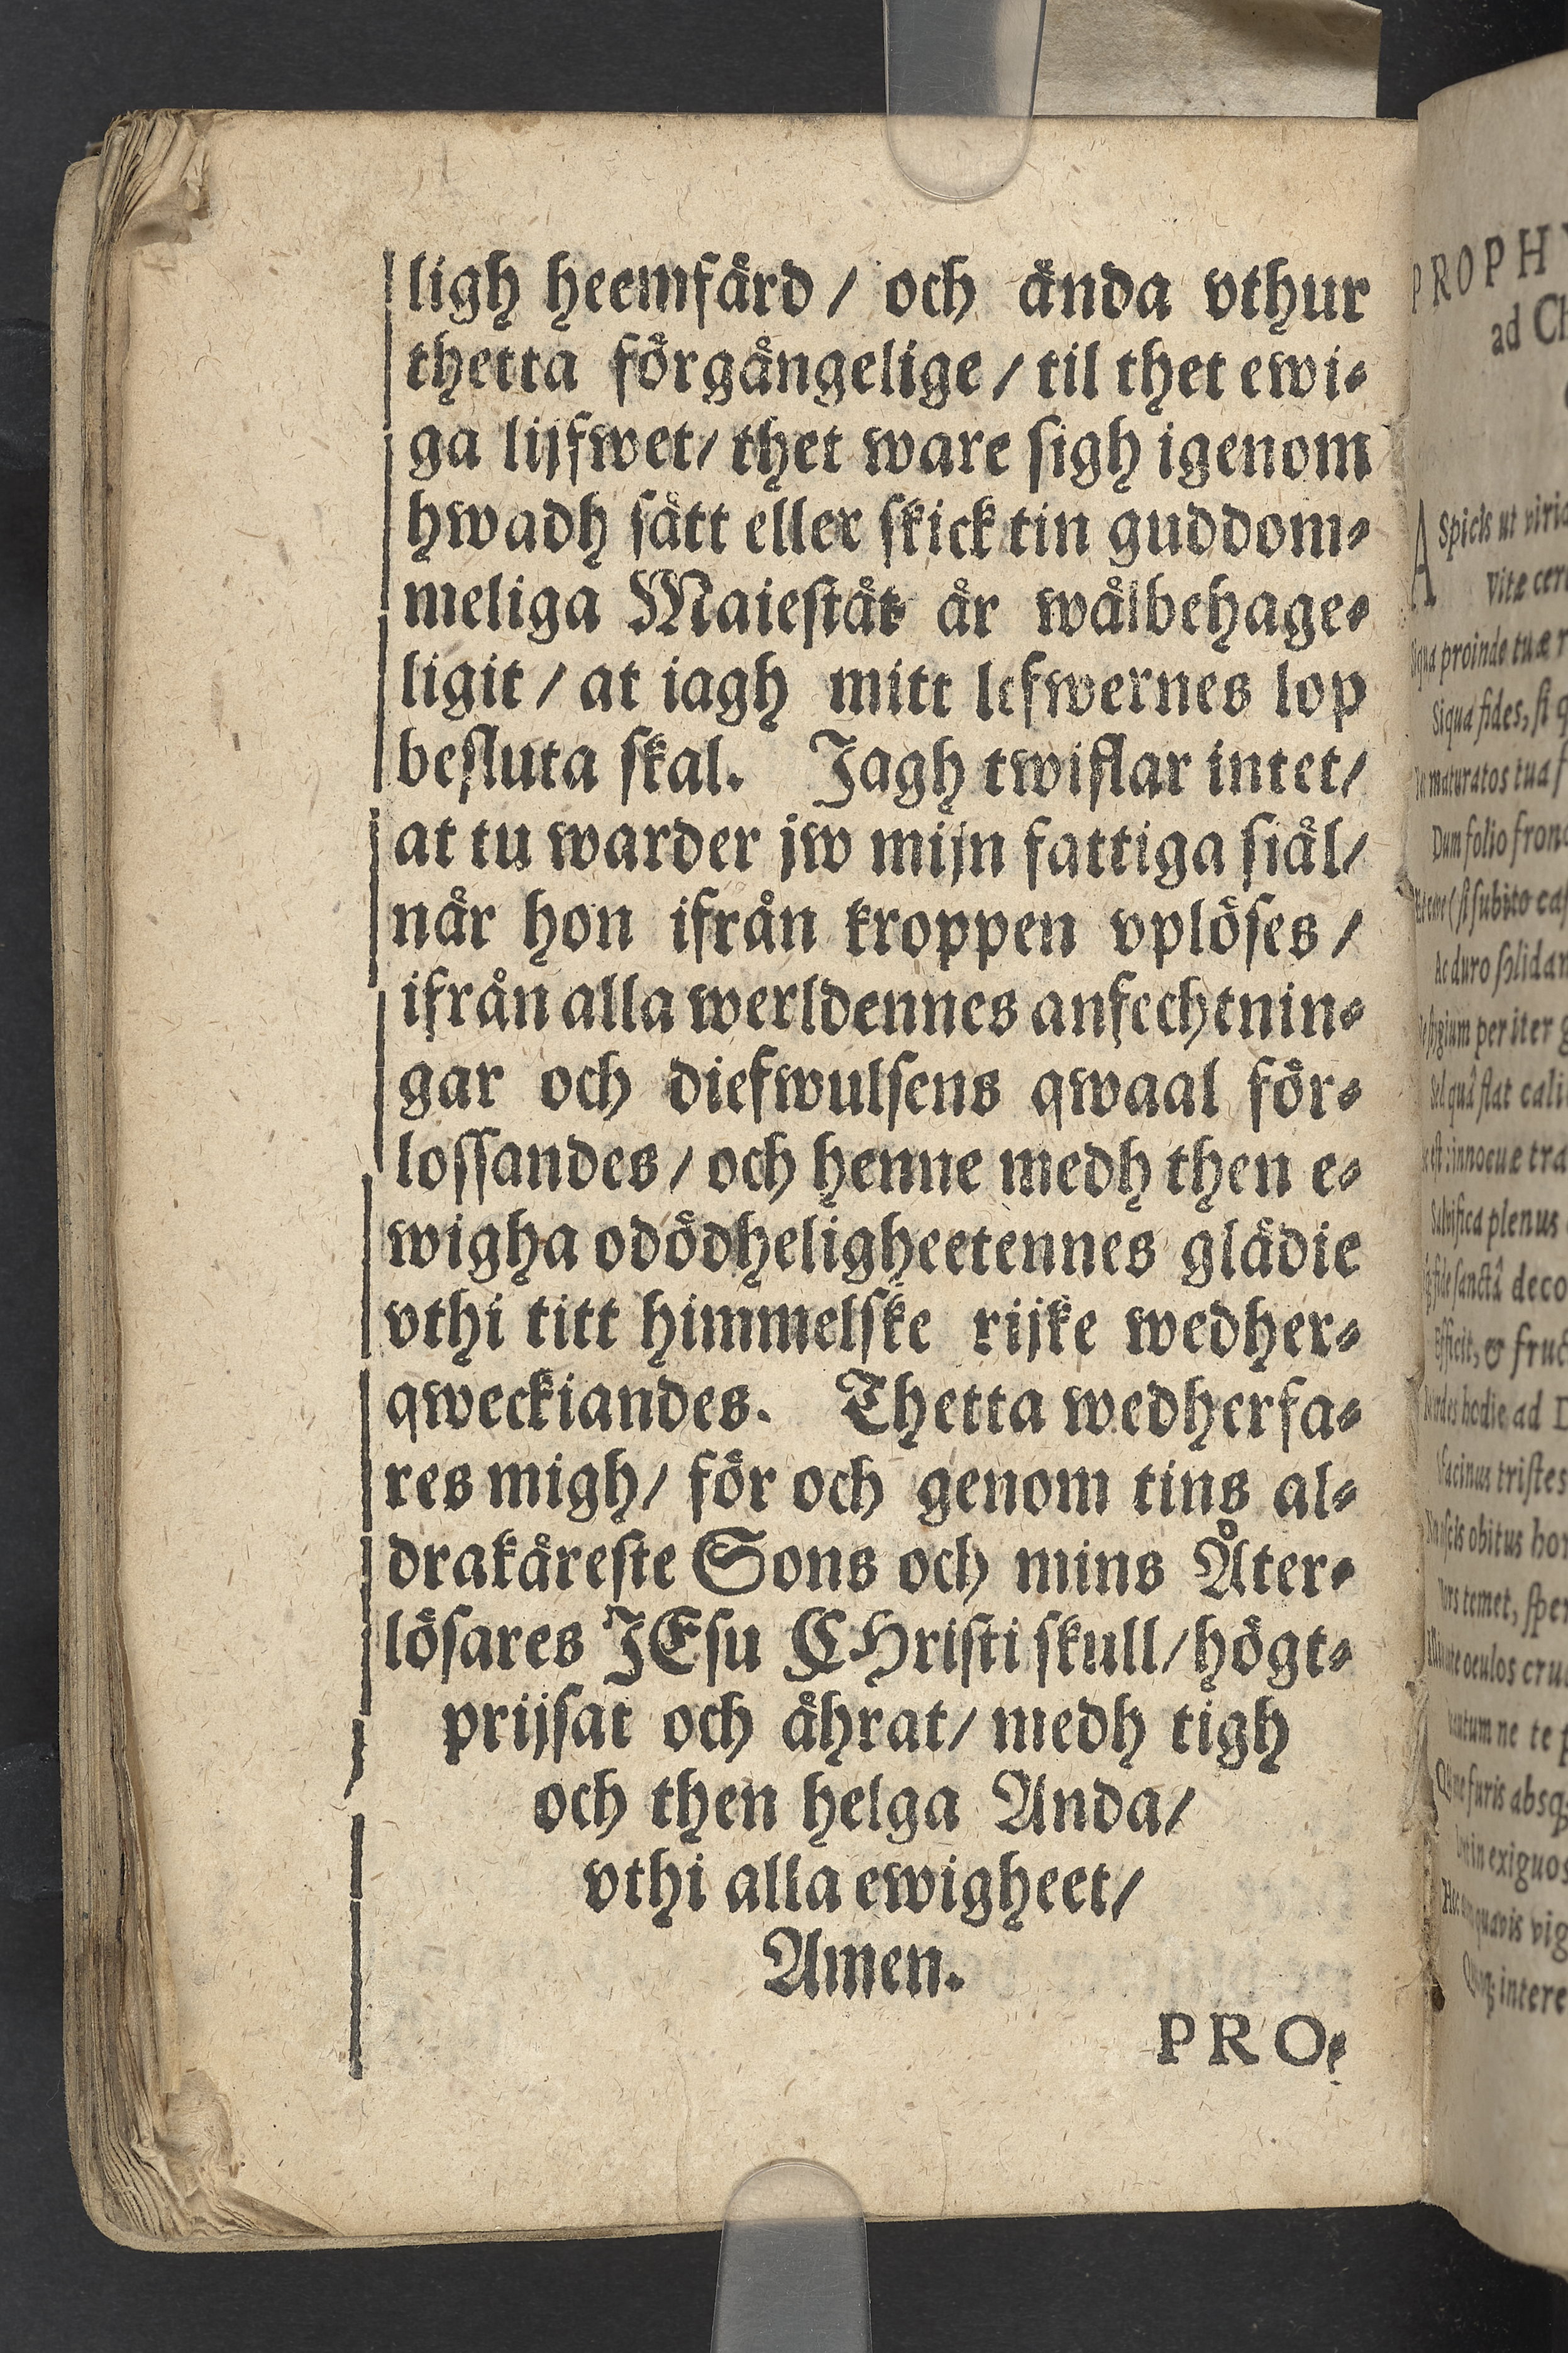 ligh heemfärd / och ända vthur
thetta förgängelige / til thet ewi⸗
ga lijfwet / thet ware sigh igenom
hwadh sätt eller skick tin guddom⸗
meliga Maiestät är wälbehage⸗
ligit / at iagh mitt lefwernes lop
besluta skal. Jagh twiflar intet /
at tu warder jw mijn fattiga siäl /
när hon ifrån kroppen vplöses /
ifrån alla werldennes anfechtnin⸗
gar och diefwulsens qwaal för⸗
lossandes / och henne medh then e⸗
wigha odödheligheetennes glädie
vthi titt himmelske rijke wedher⸗
qweckiandes. Thetta wedherfa⸗
res migh / för och genom tins al⸗
drakäreste Sons och mins Åter⸗
lösares JEsu CHristi skull / högt⸗
prijsat och ährat / medh tigh
och then helga Anda /
vthi alla ewigheet /
Amen.
PRO⸗
PROPH
ad Ch
Spicis ut
Vitæ
proinde tuæ
Siqua fides, si
maturatos tua
Dum folio
subito
Ac duro
per iter
stat
innocuæ
plenus
deco
hodie ad
tristes
obitus
temet,
oculos
ne te
furis absq;
in exiguos